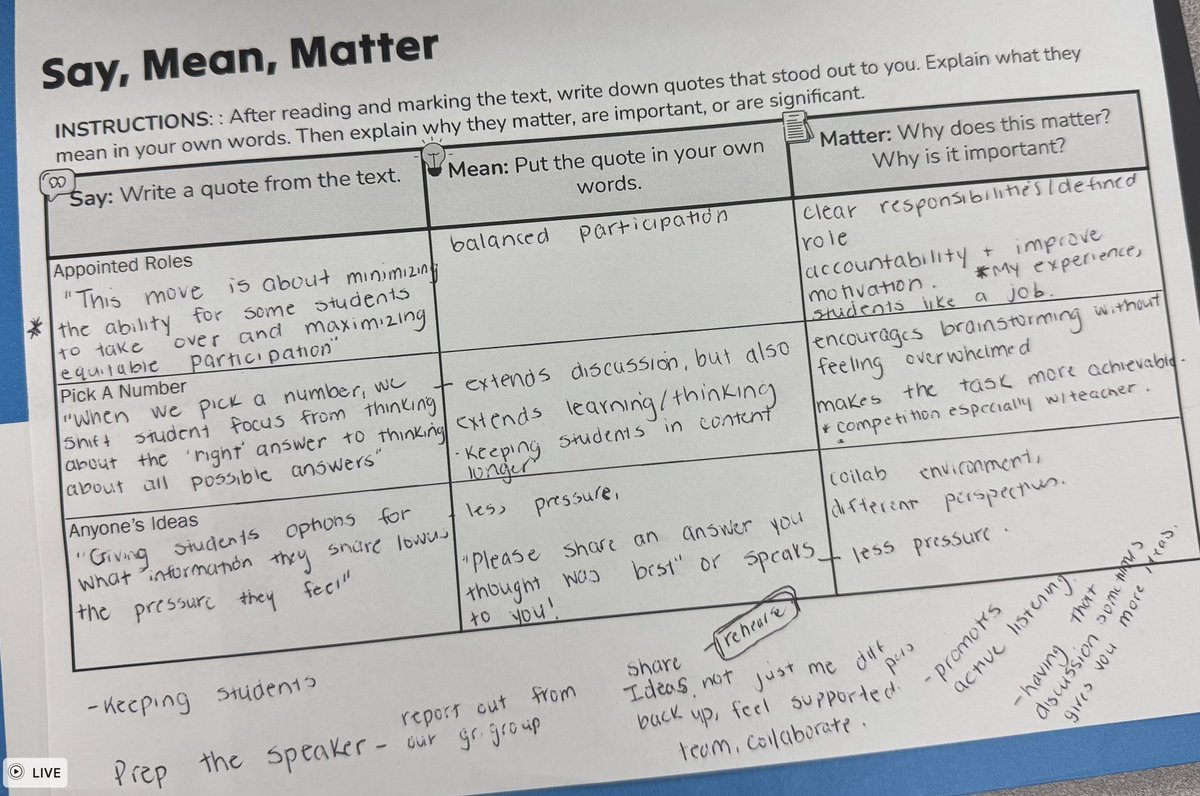 Say, Mean, Matter
INSTRUCTIONS: : After reading and marking the text, write down quotes that stood out to you. Explain what they
mean in your own words. Then explain why they matter, are important, or are significant.
Say: Write a quote from the text.
Mean: Put the quote in your own
words.
Matter: Why does this matter?
Why is it important?
Appointed Roles
"This move is about minimizing
* the ability for some students
to take over and maximizing
equitable participation"
balanced participation
clear responsibilities/defined
role
accountability + improve
motivation. *My experience,
students like a job.
Pick A Number
"When we pick a number, we
shift student focus from thinking
about the 'right' answer to thinking
about all possible answers"
- extends discussion, but also
extends learning/thinking
- Keeping students in content
longer
encourages brainstorming without
feeling overwhelmed
makes the task more achievable.
* competition especially w/teacher.
Anyone's Ideas
"Giving students options for
what information they share lowers
the pressure they feel"
- less pressure,
"Please share an answer you
thought was best" or speaks
to you!
collab environment,
different perspectives.
- less pressure.
- Keeping students
Prep the speaker - report out from
our gr. group
- rehearse
share
Ideas, not just me diff
back up, feel supported.
team, collaborate.
- promotes
active listening.
- having that
discussion sometimes
gives you more ideas.
LIVE